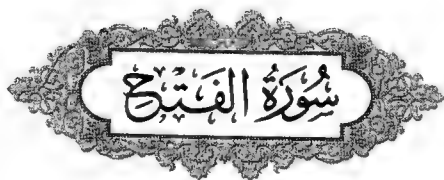 سُورَةُ الفَتۡحِ